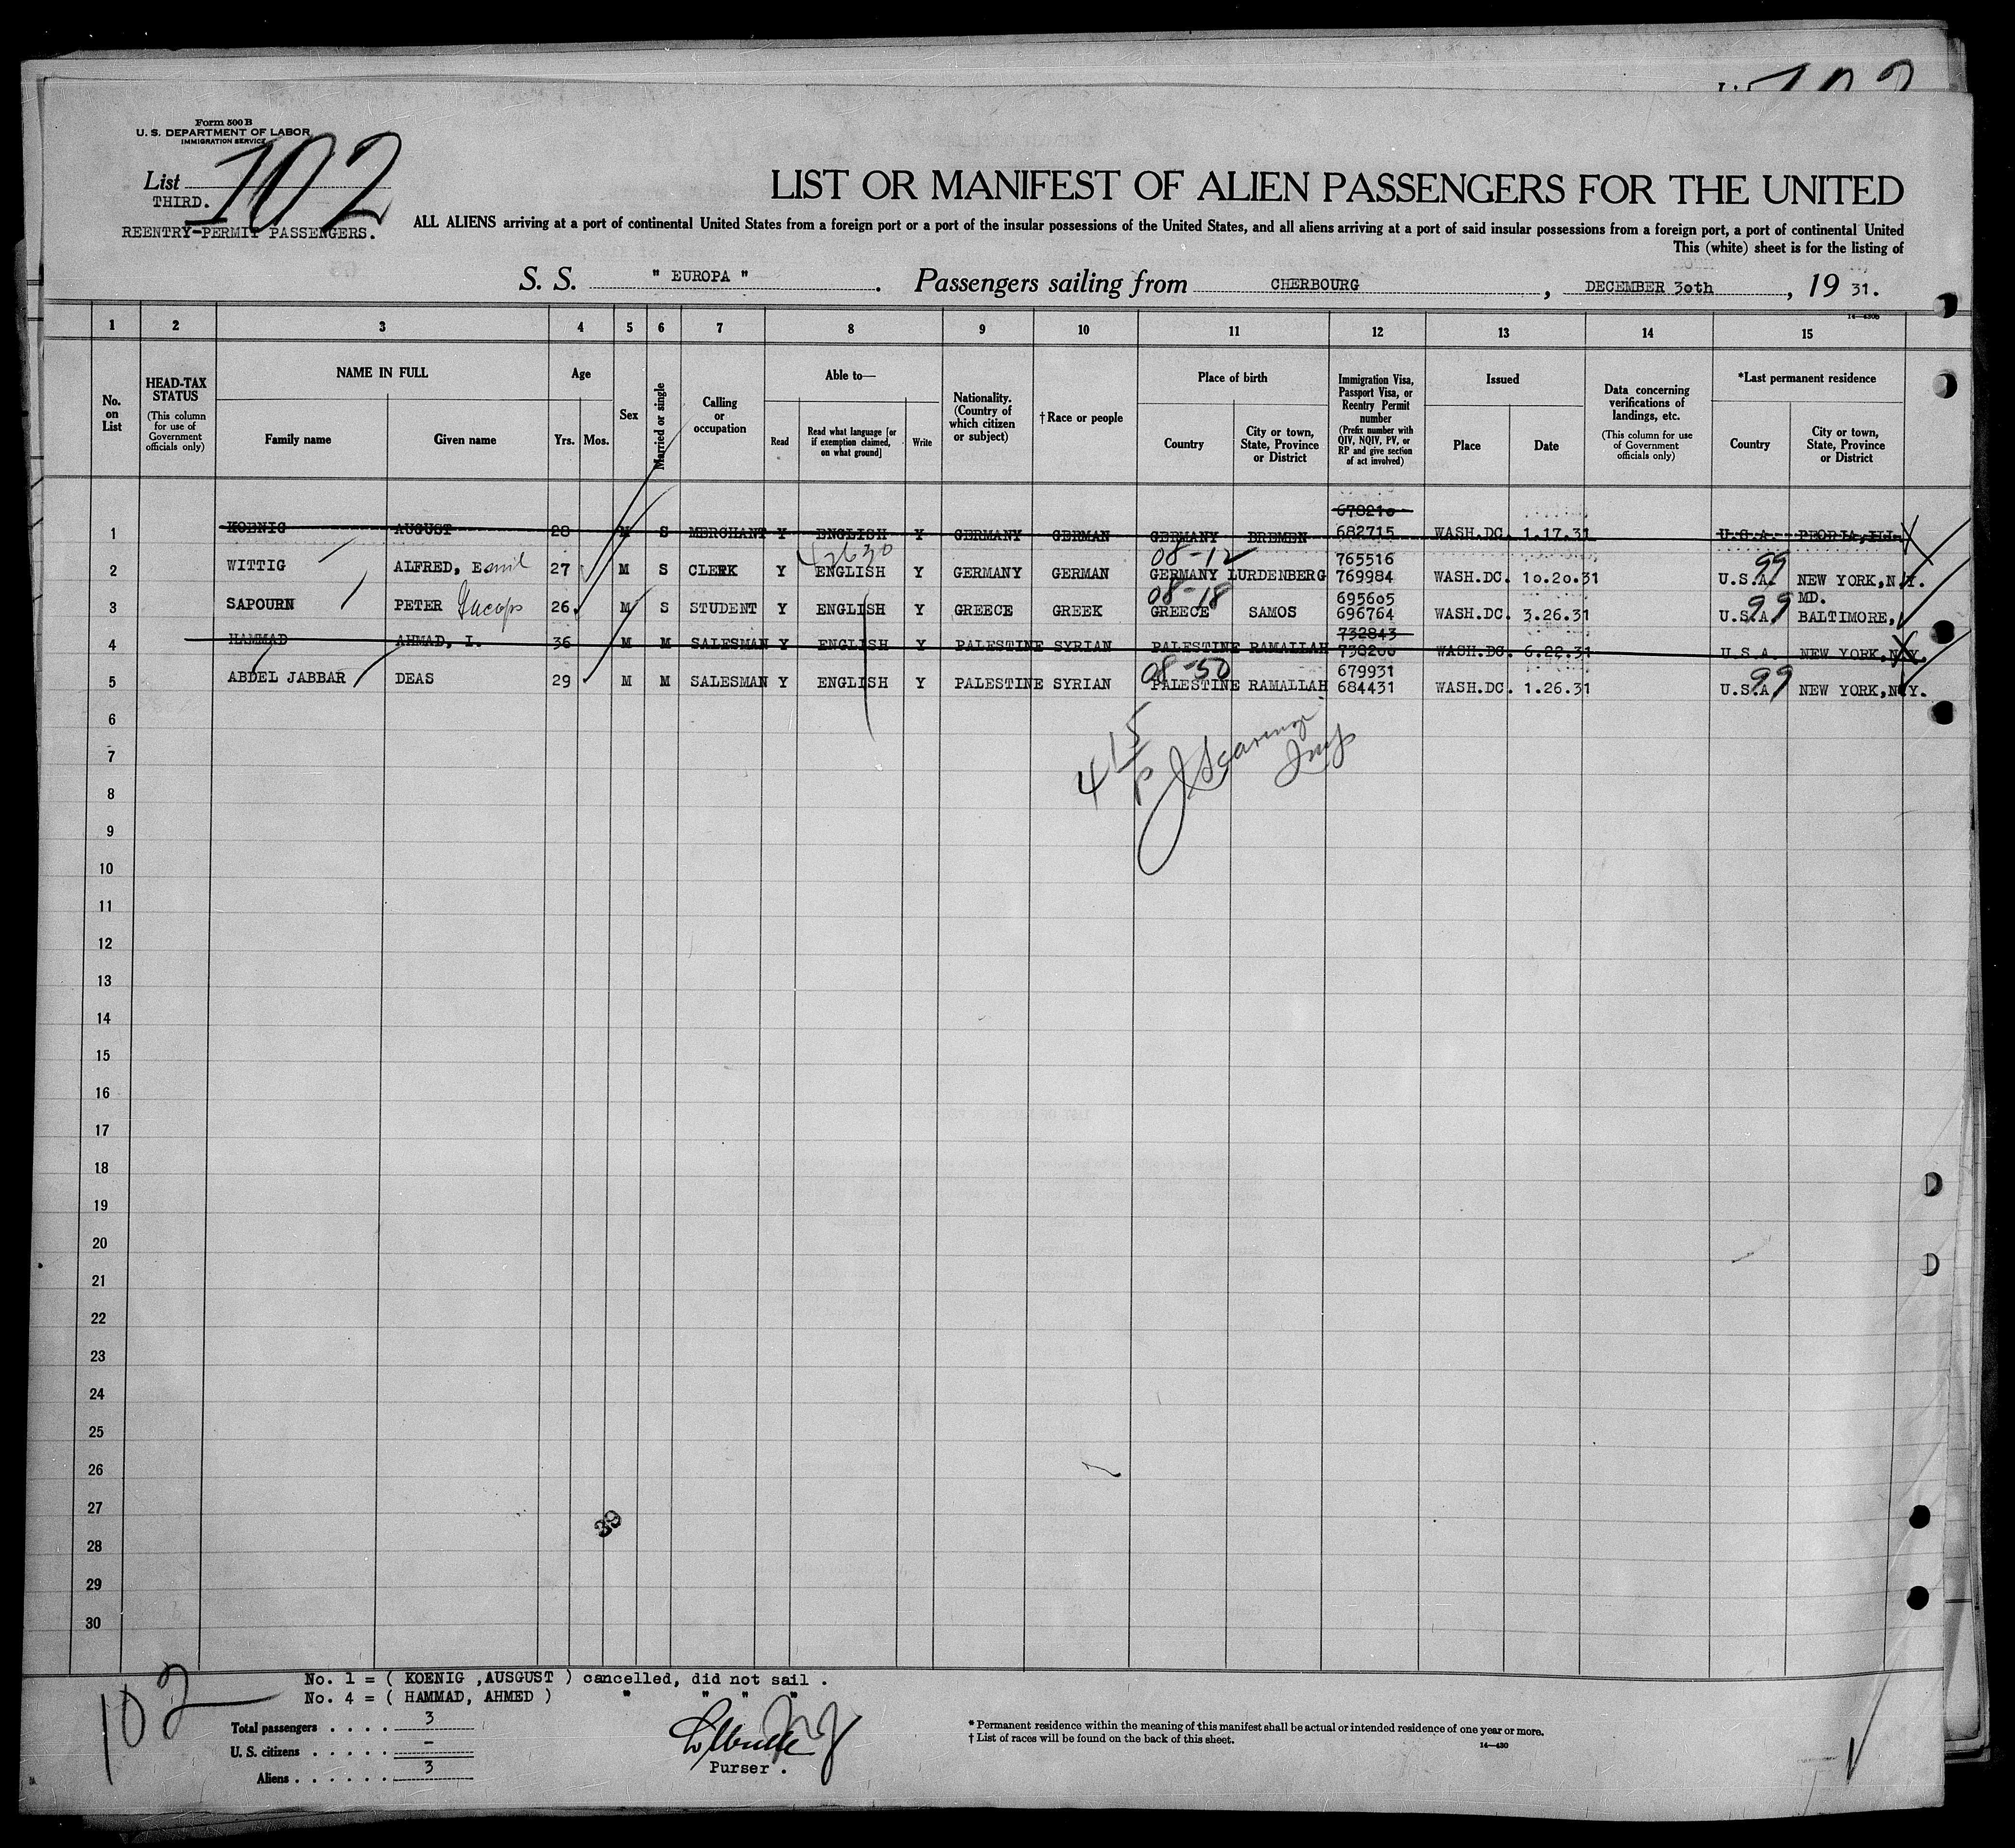 Form 500 B
U. S. DEPARTMENT OF LABOR
IMMIGRATION SERVICE
List 102
THIRD.
REENTRY-PERMIT PASSENGERS.
LIST OR MANIFEST OF ALIEN PASSENGERS FOR THE UNITED
ALL ALIENS arriving at a port of continental United States from a foreign port or a port of the insular possessions of the United States, and all aliens arriving at a port of said insular possessions from a foreign port, a port of continental United
This (white) sheet is for the listing of
S. S. " EUROPA " . Passengers sailing from CHERBOURG , DECEMBER 30th , 19 31.
14—430B
1 2 3 4 5 6 7 8 9 10 11 12 13 14 15
No. on List
HEAD-TAX STATUS (This column for use of Government officials only)
NAME IN FULL
Family name
Given name
Age
Yrs.
Mos.
Sex
Married or single
Calling or occupation
Able to—
Read
Read what language [or if exemption claimed, on what ground]
Write
Nationality. (Country of which citizen or subject)
†Race or people
Place of birth
Country
City or town, State, Province or District
Immigration Visa, Passport Visa, or Reentry Permit number (Prefix number with QIV, NQIV, PV, or RP and give section of act involved)
Issued
Place
Date
Data concerning verifications of landings, etc. (This column for use of Government officials only)
*Last permanent residence
Country
City or town, State, Province or District
678210
1 KOENIG AUGUST 28 M S MERCHANT Y ENGLISH Y GERMANY GERMAN GERMANY BREMEN 682715 WASH.DC. 1.17.31 U.S.A. PEORIA,ILL.
42630 08-12 765516 99
2 WITTIG ALFRED, Emil 27 M S CLERK Y ENGLISH Y GERMANY GERMAN GERMANY LURDENBERG 769984 WASH.DC. 10.20.31 U.S.A. NEW YORK,N.Y.
08-18 695605 99 MD.
3 SAPOURN PETER 26 M S STUDENT Y ENGLISH Y GREECE GREEK GREECE SAMOS 696764 WASH.DC. 3.26.31 U.S.A. BALTIMORE,
732843
4 HAMMAD AHMAD, I. 36 M M SALESMAN Y ENGLISH Y PALESTINE SYRIAN PALESTINE RAMALLAH 738200 WASH.DC. 6.22.31 U.S.A. NEW YORK,N.Y.
08-50 679931 99
5 ABDEL JABBAR DEAS 29 M M SALESMAN Y ENGLISH Y PALESTINE SYRIAN PALESTINE RAMALLAH 684431 WASH.DC. 1.26.31 U.S.A. NEW YORK,N.Y.
6
7
8
9
10
11
12
13
14
15
16
17
18
19
20
21
22
23
24
25
26
27
39
28
29
30
102
No. 1 = ( KOENIG ,AUSGUST ) cancelled, did not sail .
No. 4 = ( HAMMAD, AHMED ) " " " "
Total passengers . . . . 3
U. S. citizens . . . . . –
Aliens . . . . . . 3
Purser .
* Permanent residence within the meaning of this manifest shall be actual or intended residence of one year or more.
† List of races will be found on the back of this sheet.
14—430